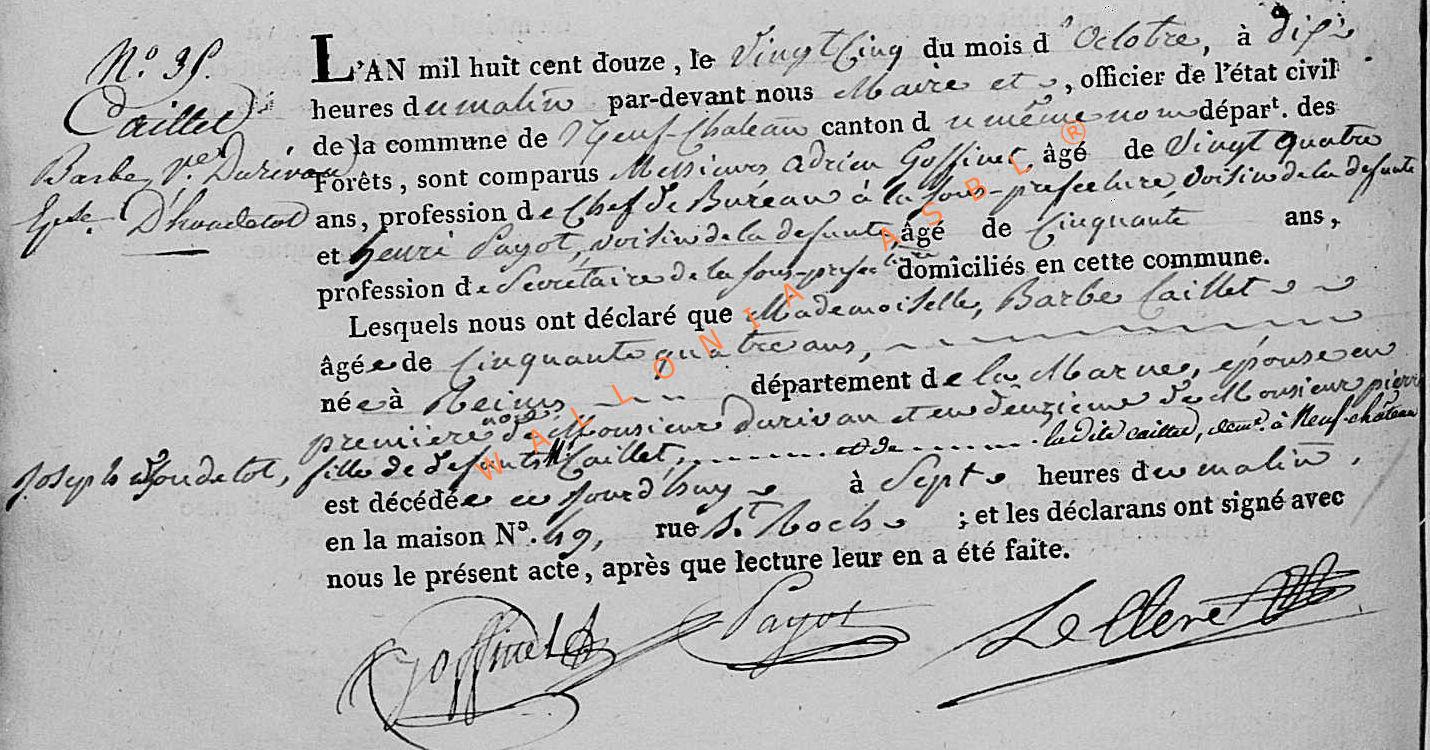 N.° 35.
Caillet
Barbe V.e Durivau
Ep.se D'houdetot
L'AN mil huit cent douze, le Vingt Cinq du mois d'Octobre, à dix
heures du matin par-devant nous Maire et, officier de l'état civil
de la commune de Neuf-Chateau canton du même nom départ. des
Forêts, sont comparus Messieurs adrien Goffinet, âgé de Vingt quatre
ans, profession de Chef de Bureau à la sous-prefecture, Voisin de la defunte
et henri Payot, voisin de la defunte, âgé de Cinquante ans,
profession de Secrétaire de la sous-prefecture domiciliés en cette commune.
Lesquels nous ont déclaré que Mademoiselle, Barbe Caillet
âgée de Cinquante quatre ans,
née à Reims département de la Marne, epouse en
premiere noce de Monsieur durivau et en deuzieme de Monsieur pierre
Joseph d'houdetot, fille de defunts Caillet, et de ladite caillet, dem.t à Neuf-château
est décédée ce jourd'huy à Sept heures du matin,
en la maison N°. 49, rue S.t Roch ; et les déclarans ont signé avec
nous le présent acte, après que lecture leur en a été faite.
Goffinet Payot LeClerc
WALLONIA ASBL ®